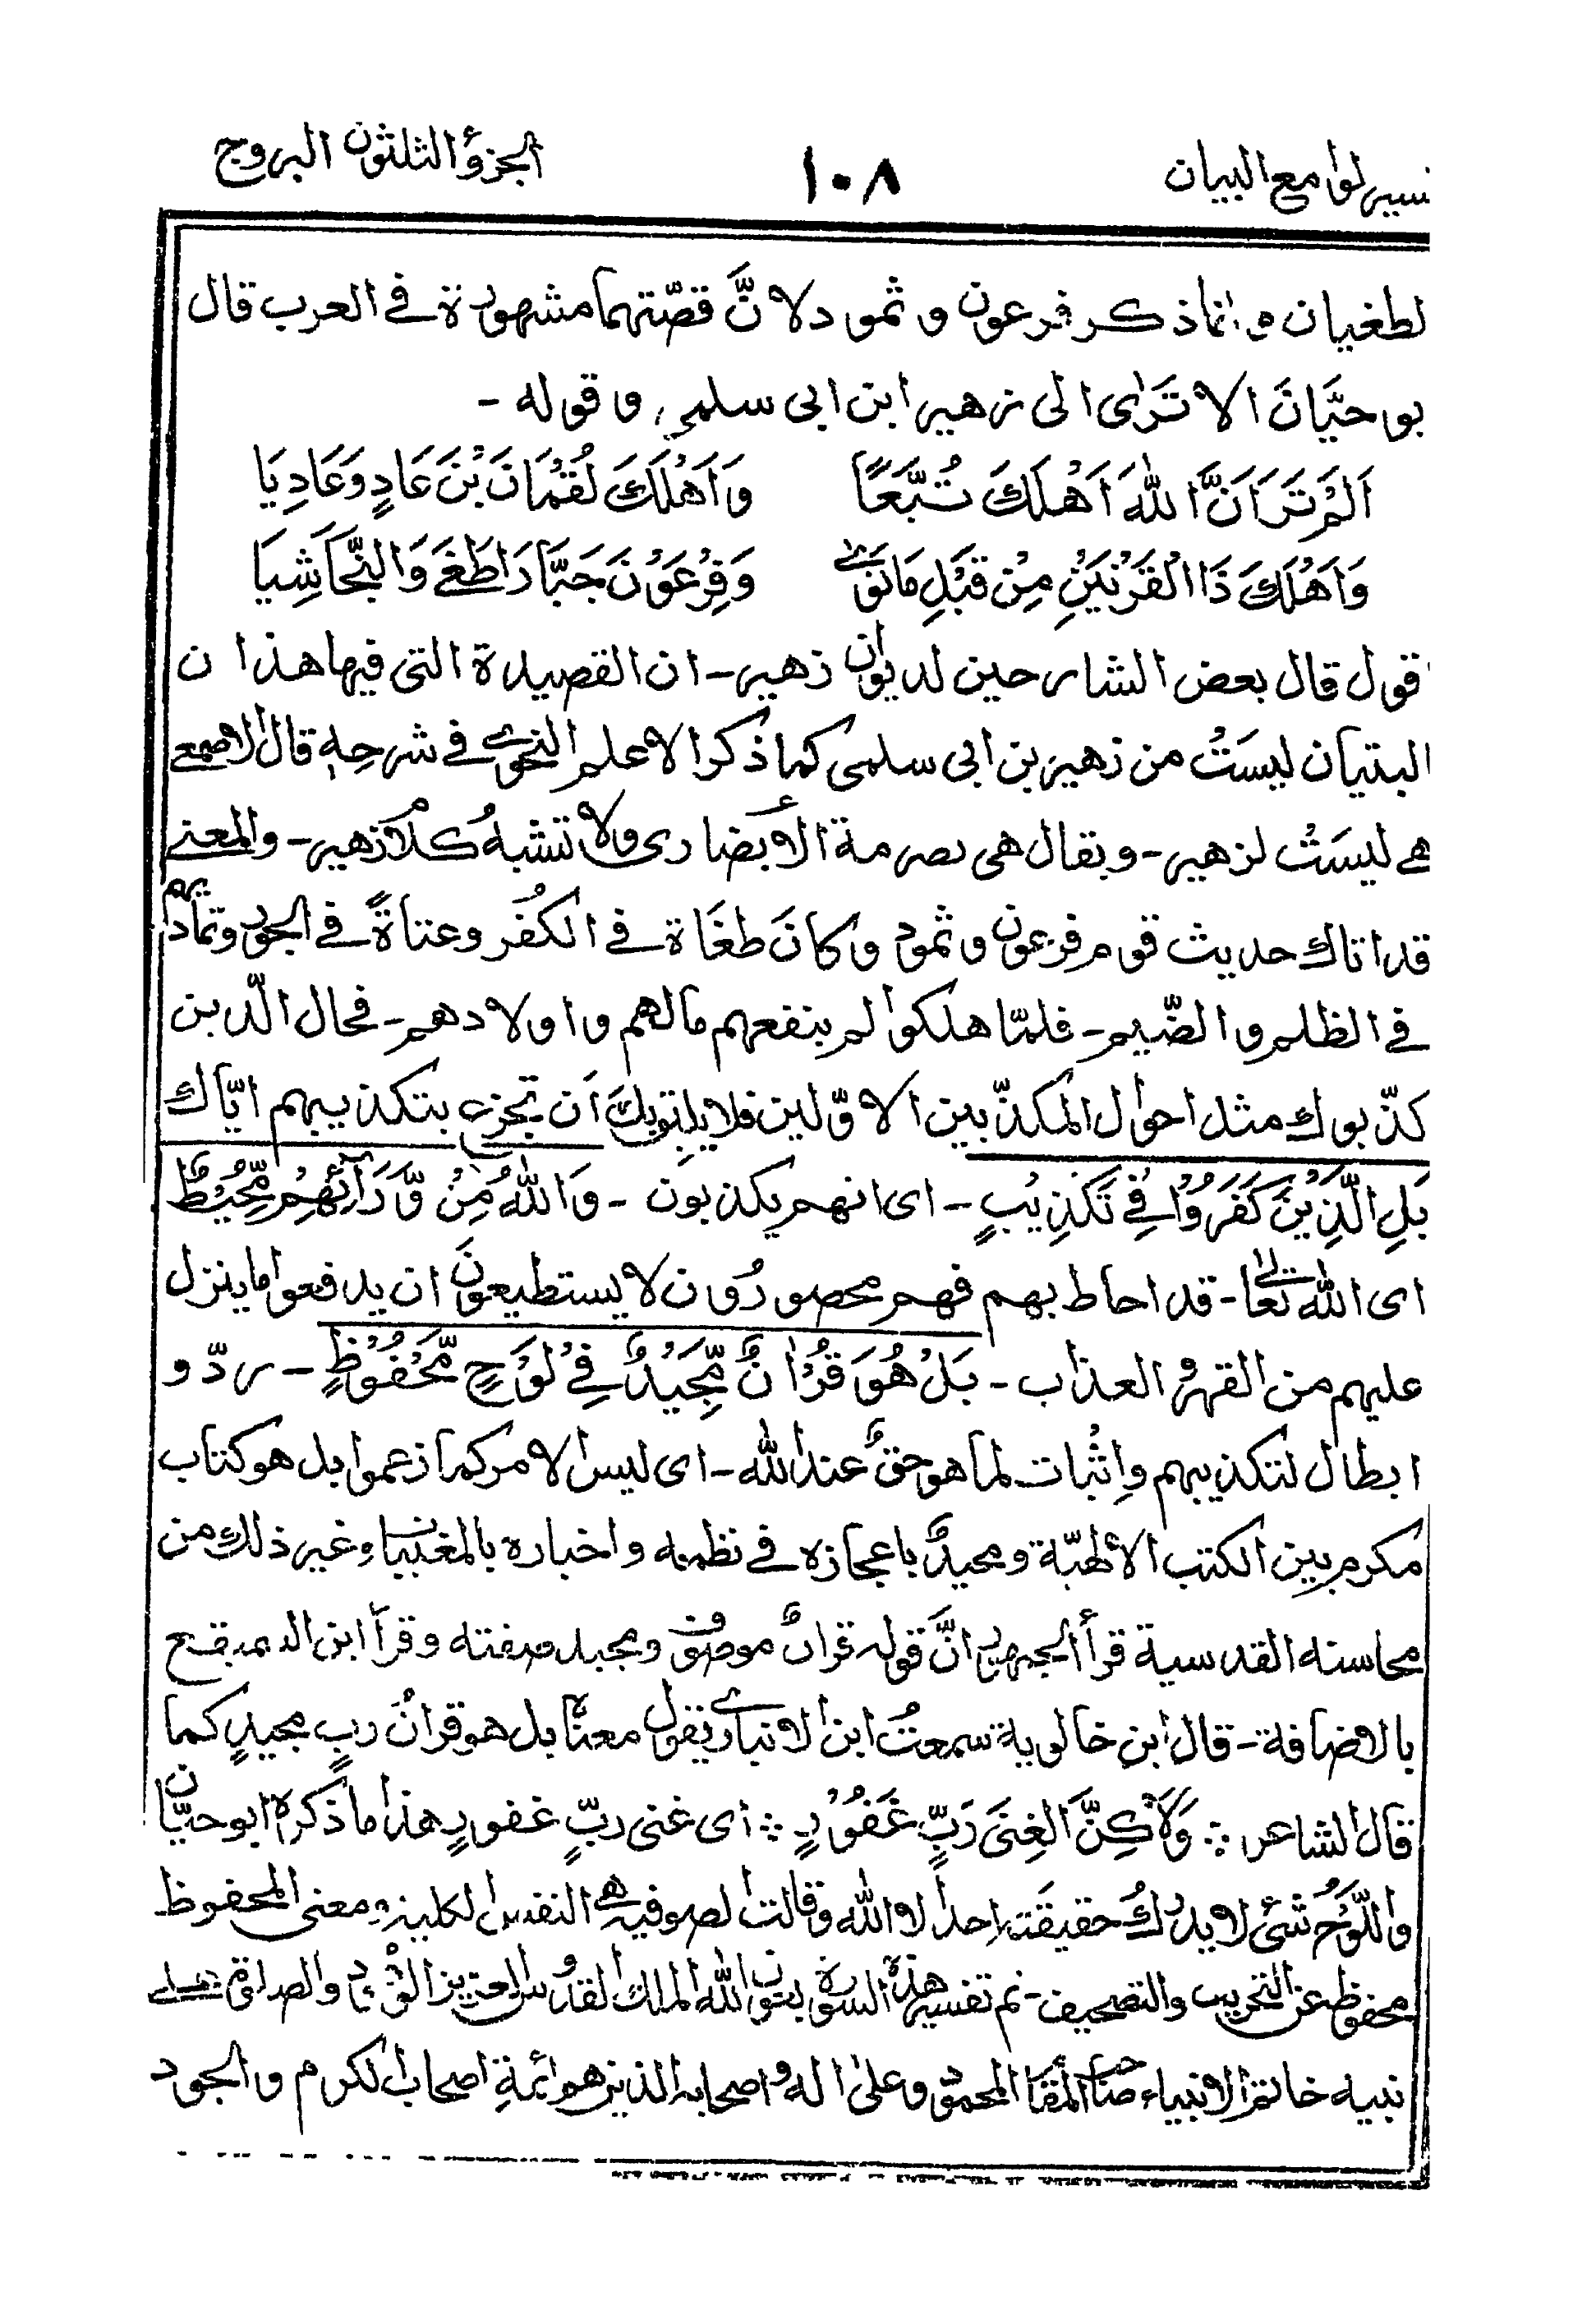 نسير لوامع البيان
١٠٨
الجزؤ الثلثون البروج
لطغيان وانما ذكر فرعون وثمود لانَّ قصّتهما مشهورة فى العرب قال
بوحيَّانَ الا تَرٰى الى زهير ابن ابى سلمى وقوله -
اَلَمْ تَرَ اَنَّ اللّٰهَ اَهْلَكَ تُبَّعًا وَاَهْلَكَ لُقْمَانَ بْنَ عَادٍ وَعَادِيَا
وَاَهْلَكَ ذَا الْقَرْنَيْنِ مِنْ قَبْلِ مَا تَرٰى وَفِرْعَوْنَ جَبَّارًا طَغَى وَالنَّجَاشِيَا
قول قال بعض الشارحين لديوان زهير - ان القصيدة التى فيها هذا ن
البتيان ليسَتْ من زهير بن ابى سلمى كما ذكر الاعلم النحوى فى شرحه قال الاصمعى
هى ليسَتْ لزهير - ويقال هى لصرمة الأنصارى ولا تشبهُ كلام زهير - والمعنى
قد اتاك حديث قوم فرعون وثمود وكانَ طغَاة فى الكُفر وعتاةً فى الجحود وتماديهم
فى الظلم والضّيم - فلمّا هلكوا لم ينفعهم مالهم واولادهم - فحال الّذين
كذّبوك مثل احوال المكذّبين الاوّلين فلا يليق بك اَن تجزع بتكذيبهم ايّاك
بَلِ الَّذِيْنَ كَفَرُوْا فِيْ تَكْذِيْبٍ - اى انهم يكذبون - وَاللّٰهُ مِنْ وَّرَآئِهِمْ مُّحِيْطٌ
اى اللّٰه تعالٰى - قد احاط بهم فهم محصورُون لا يستطيعون ان يدفعوا ما ينزل
عليهم من القهر والعذاب - بَلْ هُوَ قُرْاٰنٌ مَّجِيْدٌ فِيْ لَوْحٍ مَّحْفُوْظٍ - ردّ و
ابطال لتكذيبهم واِثبات لما هو حقٌ عند اللّٰه - اى ليس الامر كما زعموا بل هو كتاب
مكرم بين الكتب الألٰهيّة ومجيدٌ باعجازه فى نظمه واخباره بالمغيبات وغير ذلك من
محاسنه القدسية قرأ الجمهور انَّ قوله قراٰنٌ موصوف ومجيد صفته وقرأ ابن السميقع
بالاضافة - قال ابن خالوية سمعتُ ابن الانبارى يقول معناه بل هو قراٰنُ ربٍ مجيدٍ كما
قال الشاعر : وَلٰكِنَّ الْغِنَى رَبٍّ غَفُوْرٍ : اى غنى ربٍّ غفورٍ هذا ما ذكره ابوحيّان
واللَّوْحُ شئ لا يدركُ حقيقَته اِحد الا اللّٰه وقالت الصوفيه هى النفس الكلية ومعنى المحفوظ
محفوظ عن التحريف والتصحيف - تم تفسير هذه السورة بعون اللّٰه الملك القدوس العزيز والصلوة على
نبيه خاتم الانبياء صاحب المقام المحمود وعلى اله واصحابه الذين هم ائمة اصحاب الكرم والجود